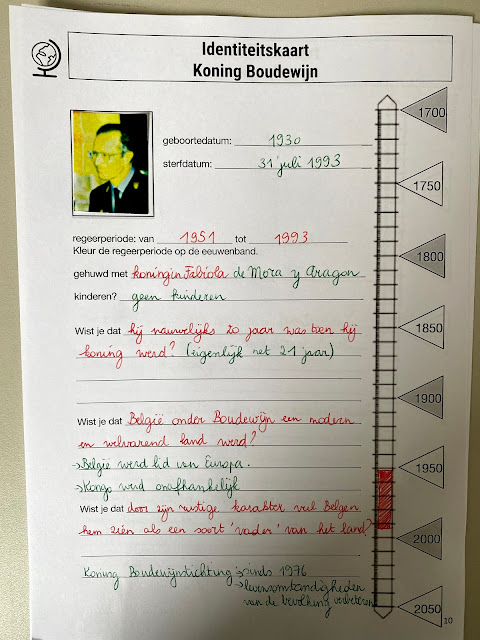 Identiteitskaart
Koning Boudewijn
geboortedatum: 1930
sterfdatum: 31 juli 1993
regeerperiode: van 1951 tot 1993
Kleur de regeerperiode op de eeuwenband.
gehuwd met koningin Fabiola de Mora y Aragon
kinderen? geen kinderen
Wist je dat hij nauwelijks 20 jaar was toen hij
koning werd? (eigenlijk net 21 jaar)
Wist je dat België onder Boudewijn een modern
en welvarend land werd?
→ België werd lid van Europa.
→ Kongo werd onafhankelijk
Wist je dat door zijn rustige karakter veel Belgen
hem zien als een soort 'vader' van het land?
Koning Boudewijnstichting → sinds 1976
→ levensomstandigheden
van de bevolking verbeteren
1700
1750
1800
1850
1900
1950
2000
2050
10